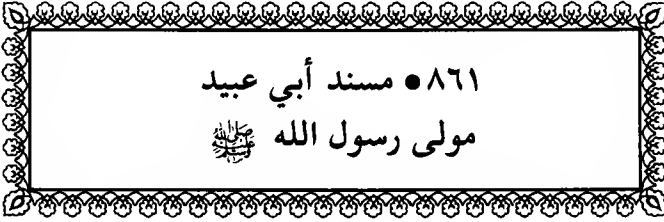 ٨٦١ • مسند أبي عبيد
مولى رسول الله ﷺ